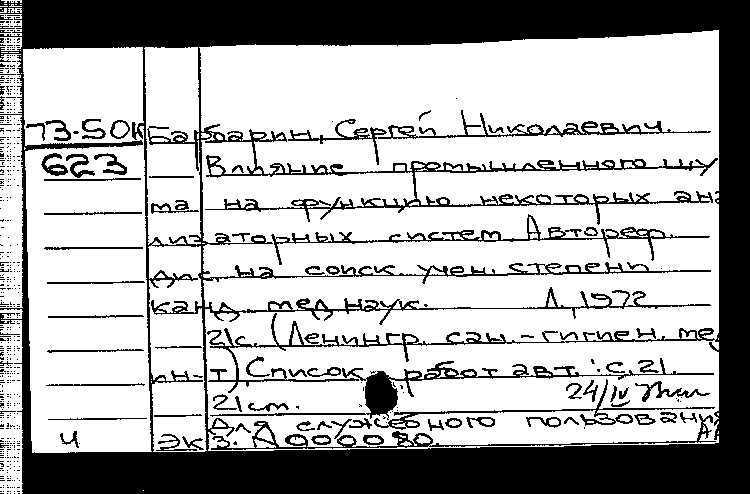 73-50к Барбарин, Сергей Николаевич.
623 Влияние промышленного шу
ма на функцию некоторых ана
лизаторных систем. Автореф.
дис. на соиск. учен. степени
канд. мед. наук. Л., 1972.
21с. (Ленингр. сан.-гигиен. мед
ин-т). Список работ авт.: с. 21.
21 ст. 24/IV
Для служебного пользования
ч экз. № 000080.